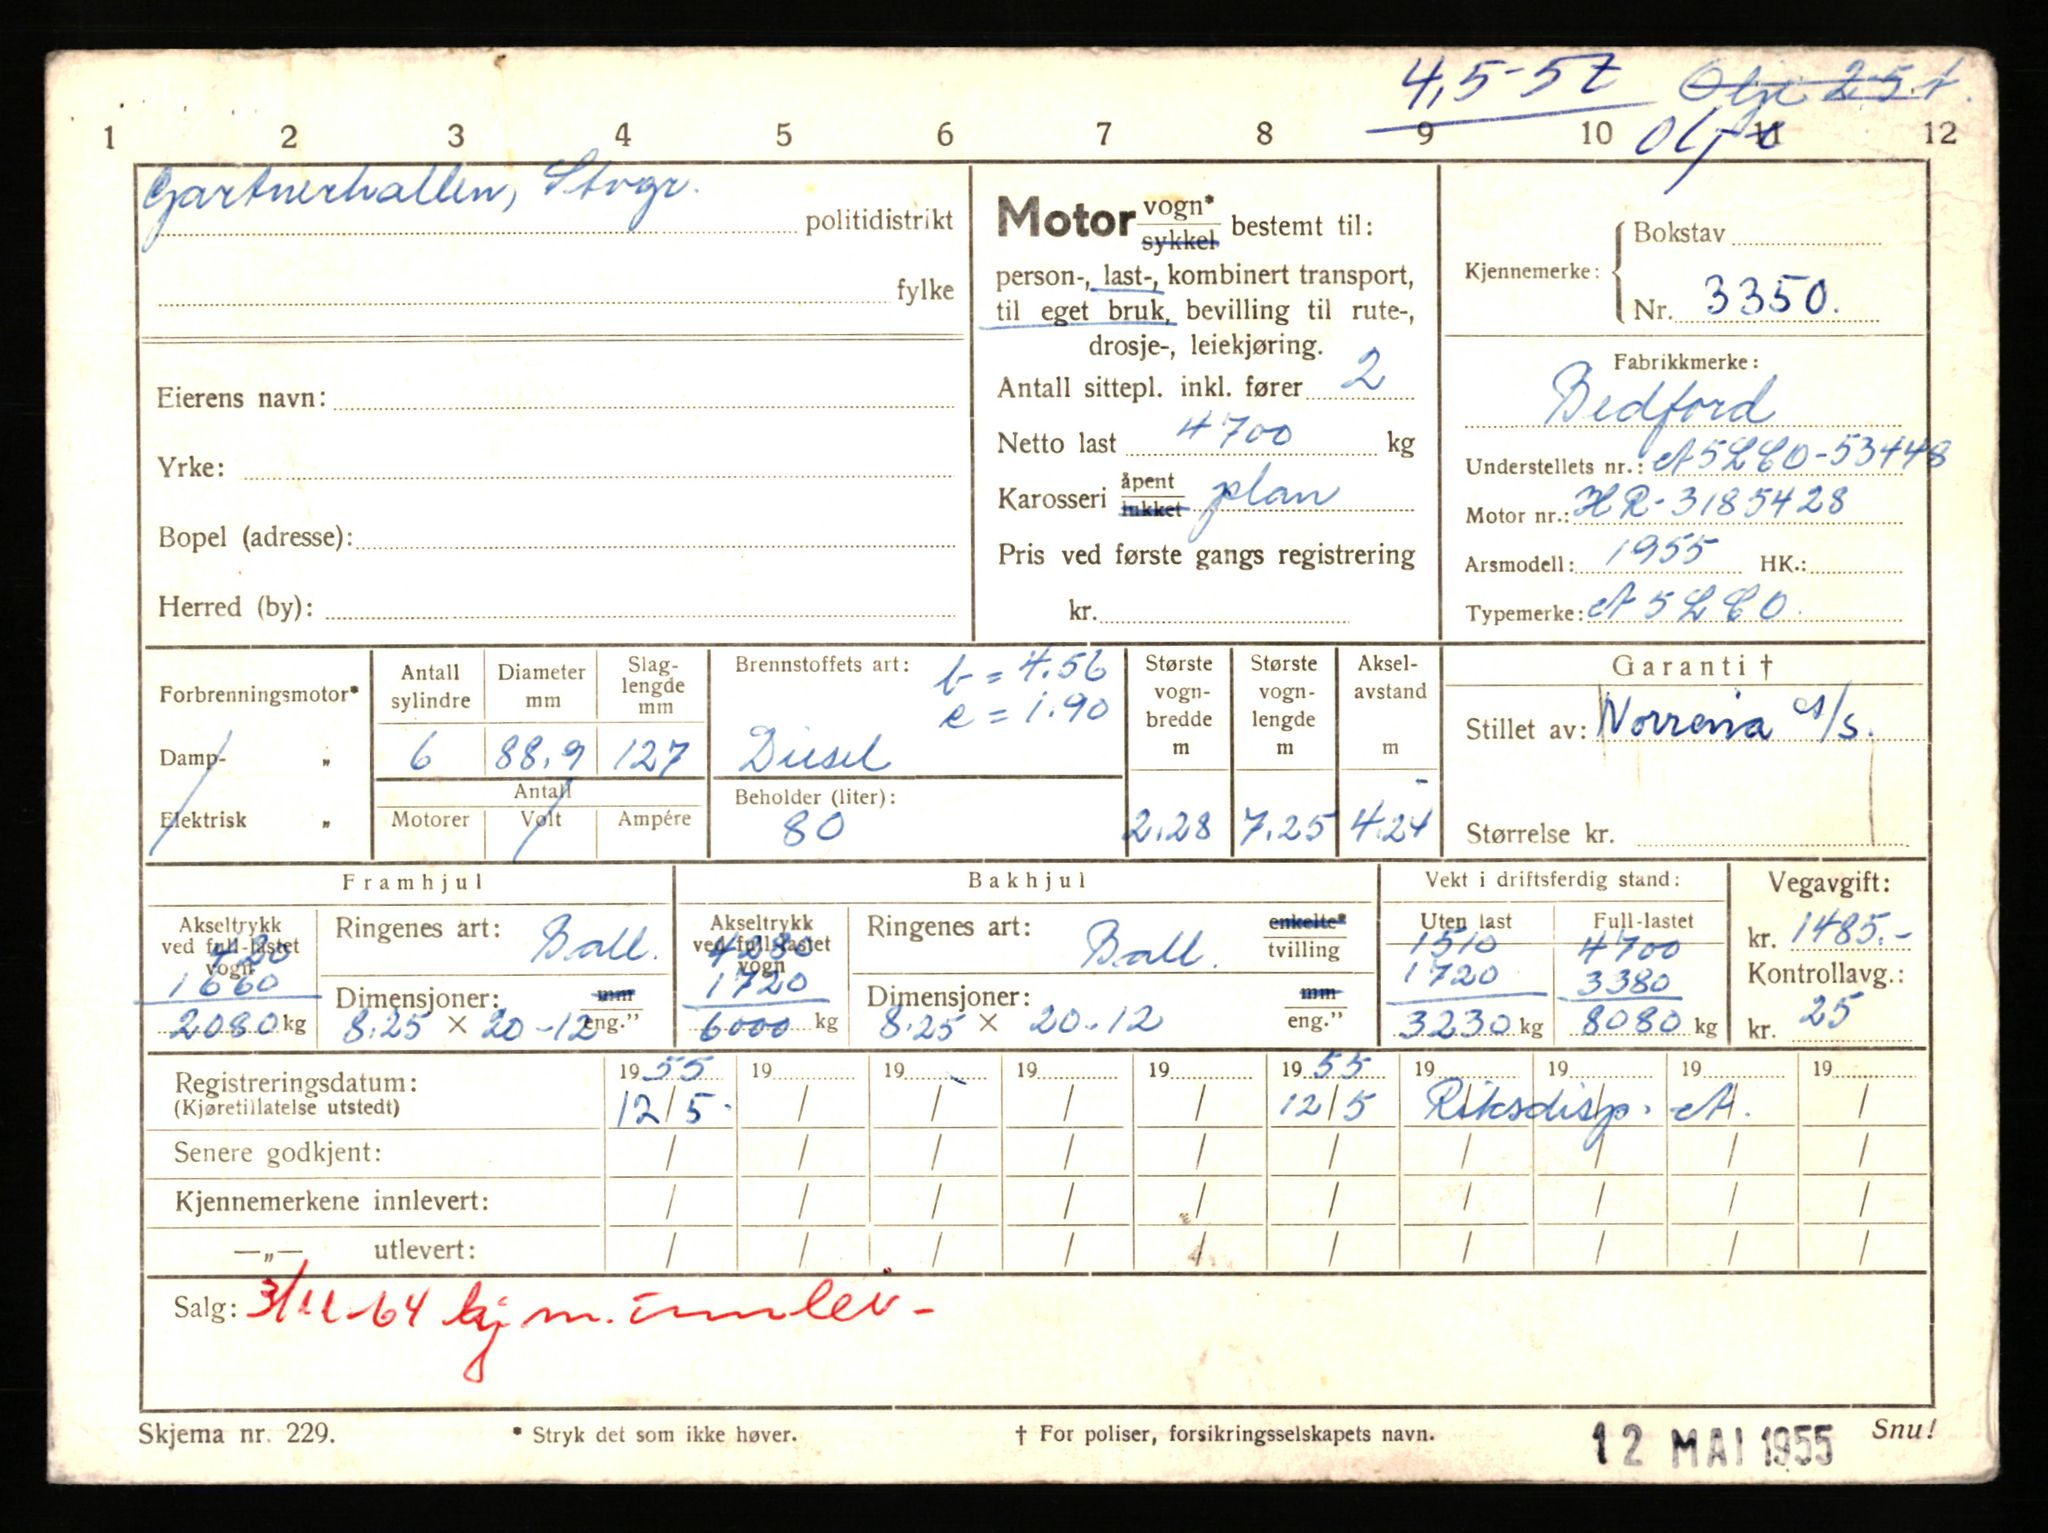 4,5-57 Olje 2-5 t.
1 2 3 4 5 6 7 8 9 10 11 12
Olje
Gartnerhallen, Stvgr. politidistrikt
fylke
Eierens navn:
Yrke:
Bopel (adresse):
Herred (by):
Motor vogn* sykkel bestemt til:
person-, last-, kombinert transport,
til eget bruk, bevilling til rute-,
drosje-, leiekjøring.
Antall sittepl. inkl. fører 2
Netto last 4700 kg
Karosseri åpent lukket plan
Pris ved første gangs registrering
kr.
Kjennemerke: Bokstav
Nr. 3350.
Fabrikkmerke:
Bedford
Understellets nr.: A5LCO-53448
Motor nr.: HR-3185428
Arsmodell: 1955 HK.:
Typemerke: A5LCO.
Forbrenningsmotor*
Damp- „
Elektrisk „
Antall sylindre
6
Diameter mm
88,9
Slag-lengde mm
127
Antall
Motorer Volt Ampére
Brennstoffets art: b = 4.56
e = 1.90
Diesel
Beholder (liter):
80
Største vogn-bredde m
2.28
Største vogn-lengde m
7.25
Aksel-avstand m
4.24
Garanti †
Stillet av: Norrøna A/S.
Størrelse kr.
Framhjul
Akseltrykk ved full-lastet vogn
420
1660
2080 kg
Ringenes art: Ball.
Dimensjoner: mm
8.25 × 20-12 eng.”
Bakhjul
Akseltrykk ved full-lastet vogn
4280
1720
6000 kg
Ringenes art: Ball. enkelte* tvilling
Dimensjoner: mm
8.25 × 20-12 eng.”
Vekt i driftsferdig stand:
Uten last Full-lastet
1510 4700
1720 3380
3230 kg 8080 kg
Vegavgift:
kr. 1485.-
Kontrollavg.:
kr. 25
Registreringsdatum: 1955 19 19 19 19 1955 19 19 19 19
(Kjøretillatelse utstedt) 12/5. / / / / 12/5 Riksdisp. A. /
Senere godkjent: / / / / / / / / / /
Kjennemerkene innlevert: / / / / / / / / / /
—„— utlevert: / / / / / / / / / /
Salg: 3/11-64 kj m. innlev-
Skjema nr. 229. * Stryk det som ikke høver. † For poliser, forsikringsselskapets navn. 12 MAI 1955 Snu!